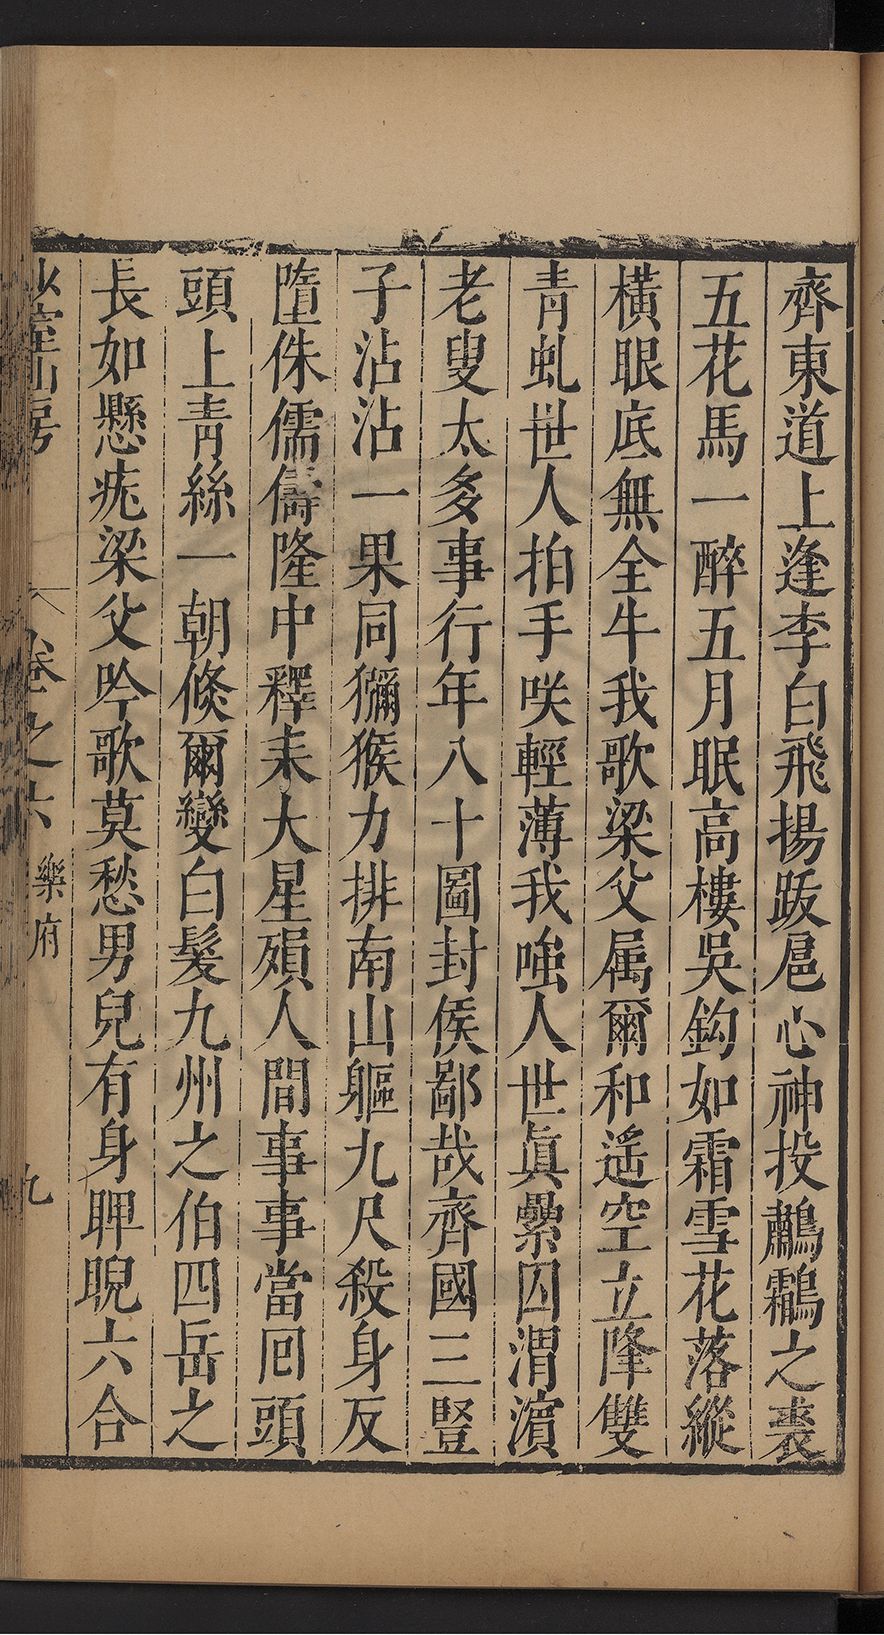 齊東道上逢李白飛揚跋扈心神投鷫鸘之裘
五花馬一醉五月眠高樓吳鈎如霜雪花落縱
橫眼底無全牛我歌梁父属爾和遥空立降雙
青虬世人拍手咲輕薄我嗤人世眞纍囚渭濵
老叟太多事行年八十圖封侯鄙哉齊國三豎
子沾沾一果同獼猴力排南山軀九尺殺身反
墮侏儒儔隆中釋耒大星殞人間事事當囘頭
頭上青絲一朝倐爾變白髮九州之伯四岳之
長如懸疣梁父吟歌莫愁男兒有身睥睨六合
少室山房 卷之六 樂府 九